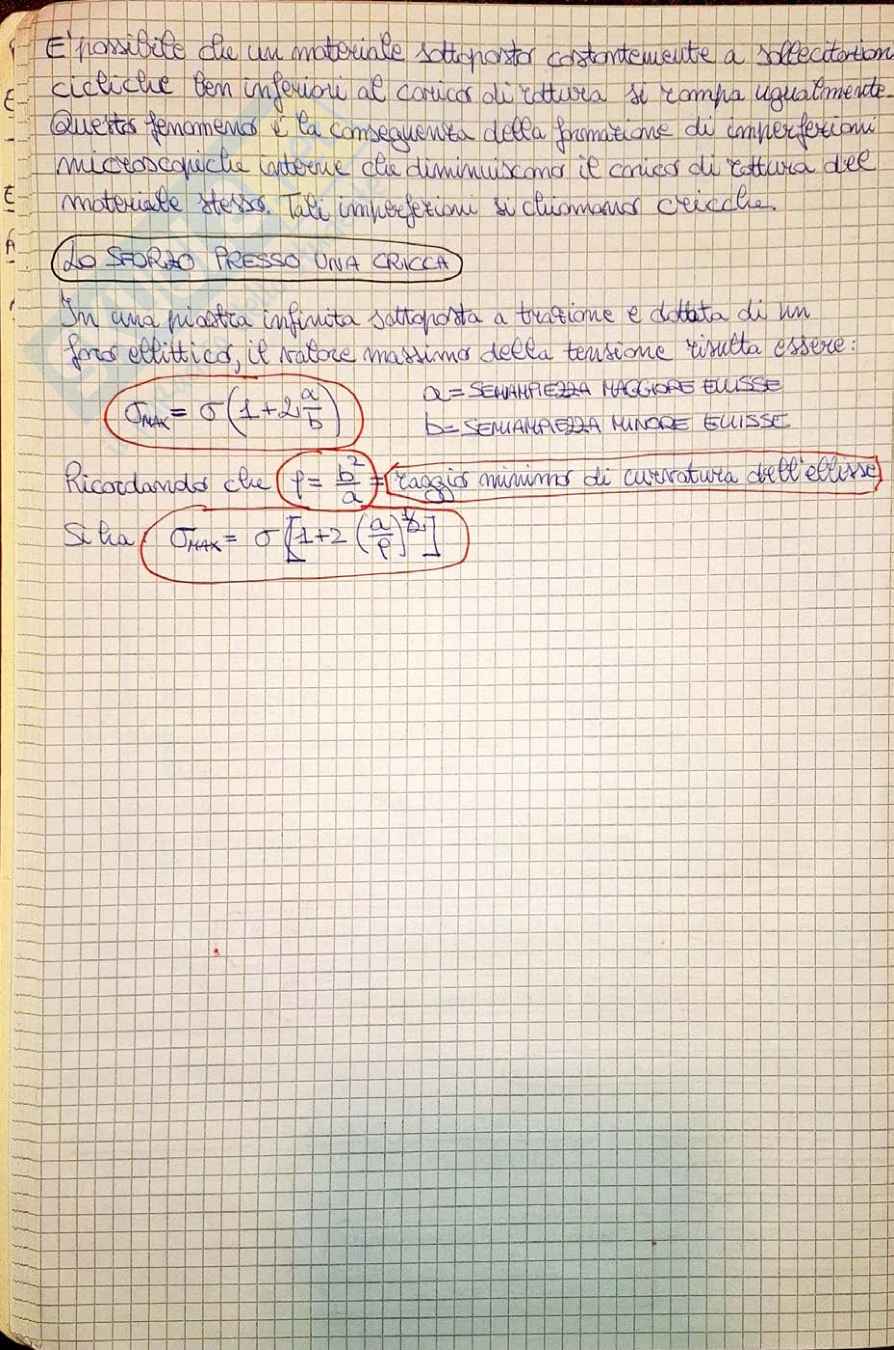 E' possibile che un materiale sottoposto costantemente a sollecitazioni
cicliche ben inferiori al carico di rottura si rompa ugualmente.
Questo fenomeno è la conseguenza della formazione di imperfezioni
microscopiche interne che diminuiscono il carico di rottura del
materiale stesso. Tali imperfezioni si chiamano cricche.
LO SFORZO PRESSO UNA CRICCA
In una piastra infinita sottoposta a trazione e dotata di un
foro ellittico, il valore massimo della tensione risulta essere:
σMAX = σ(1+2 a/b) a = SEMIAMPIEZZA MAGGIORE ELLISSE
b = SEMIAMPIEZZA MINORE ELLISSE
Ricordando che ρ = b²/a = raggio minimo di curvatura dell'ellisse
Si ha σMAX = σ[1+2 (a/ρ)^1/2]